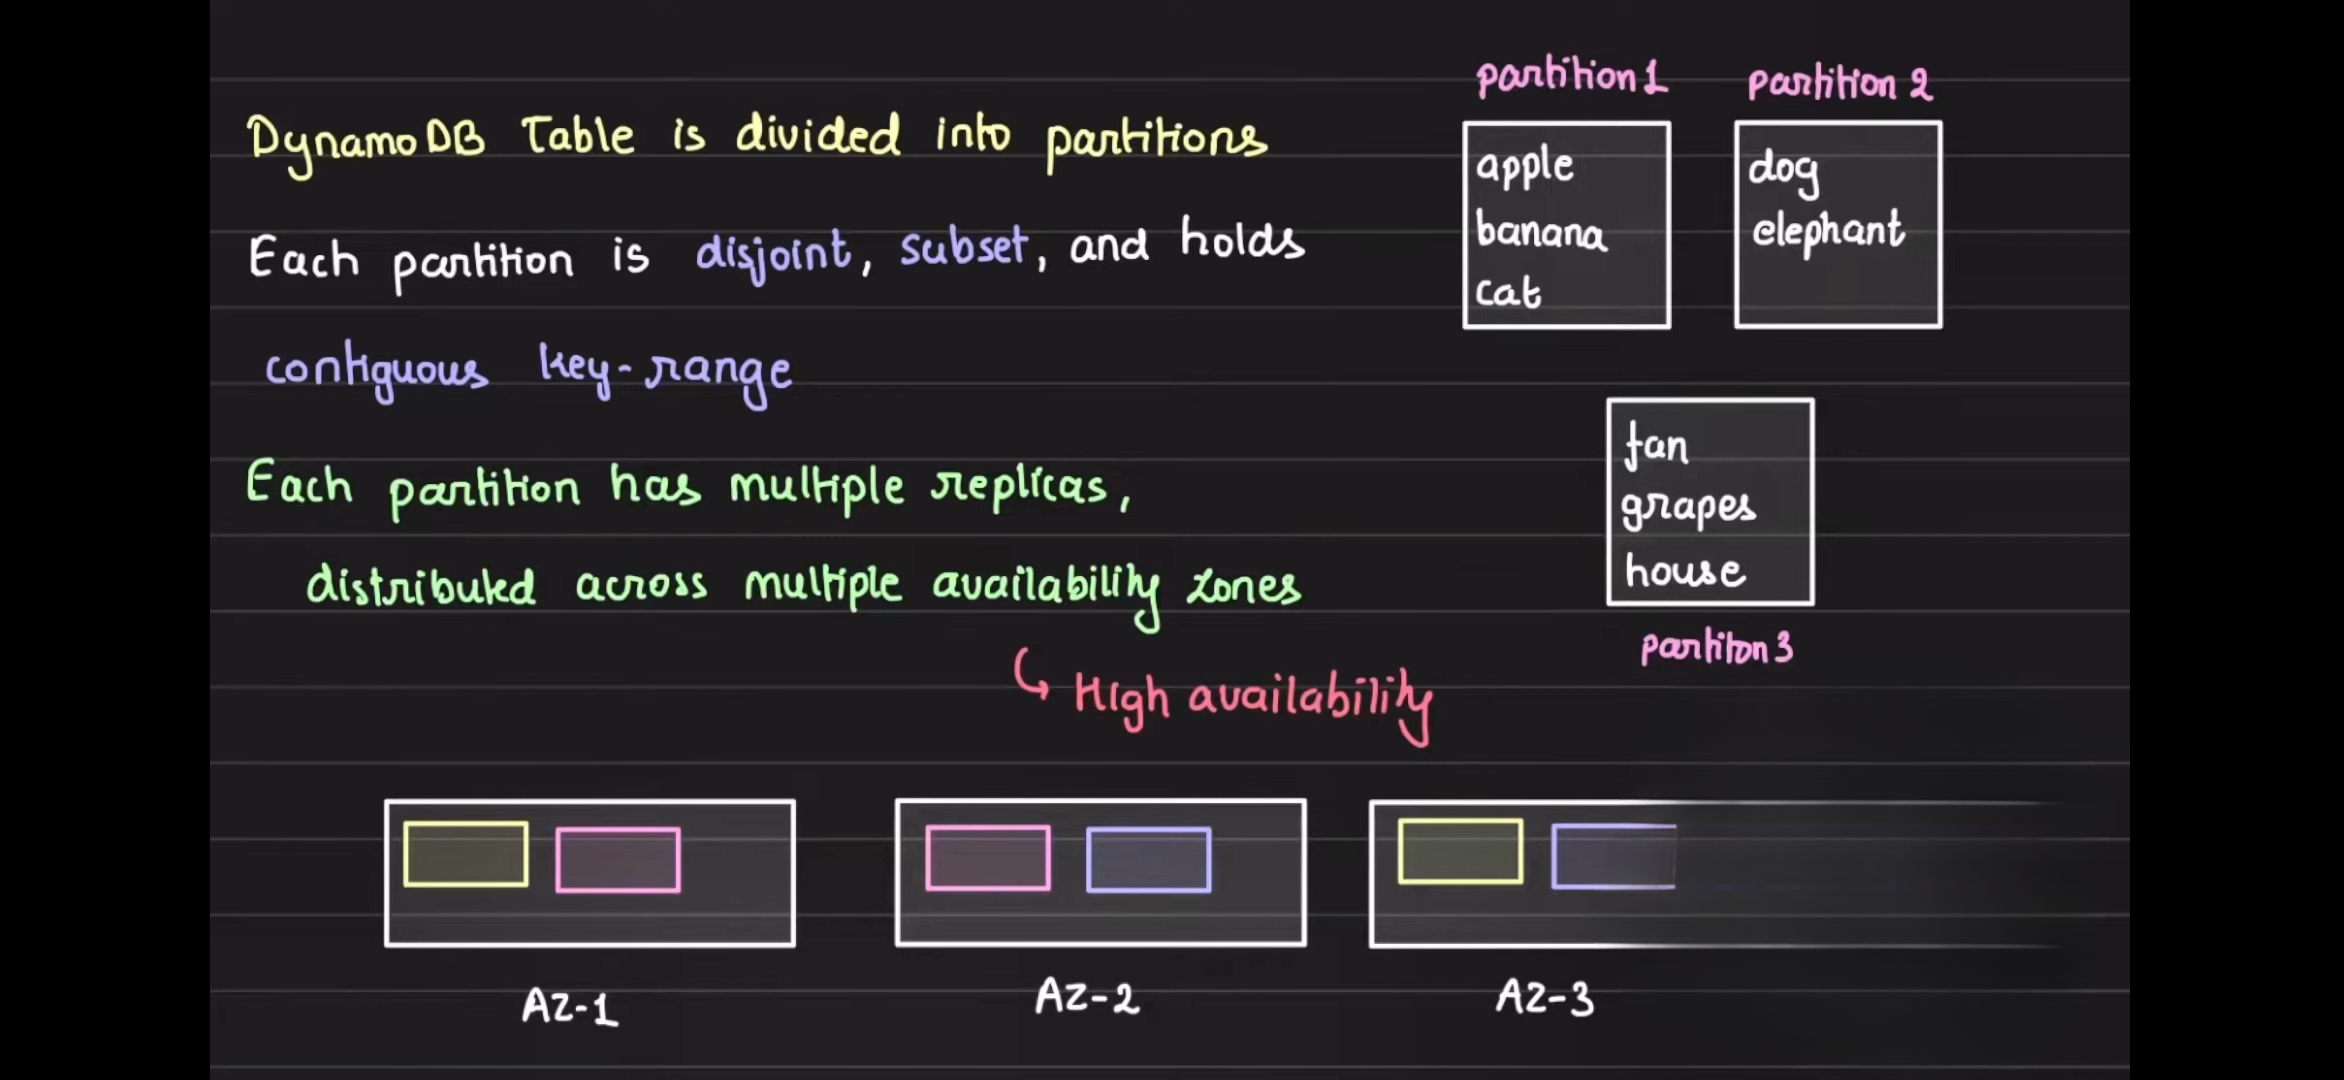 DynamoDB Table is divided into partitions
Each partition is disjoint, subset, and holds
contiguous key-range
Each partition has multiple replicas,
distributed across multiple availability zones
↳ High availability
partition 1
apple
banana
cat
partition 2
dog
elephant
fan
grapes
house
partiton 3
AZ-1
AZ-2
AZ-3